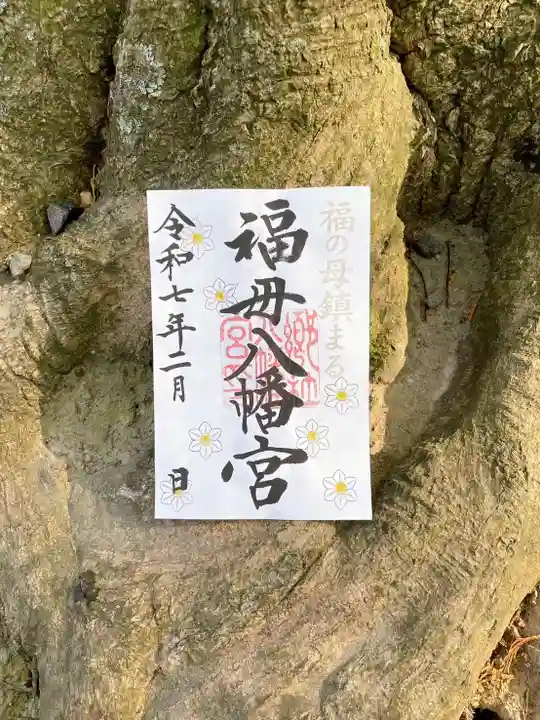 福の母鎮まる
福母八幡宮
令和七年二月 日